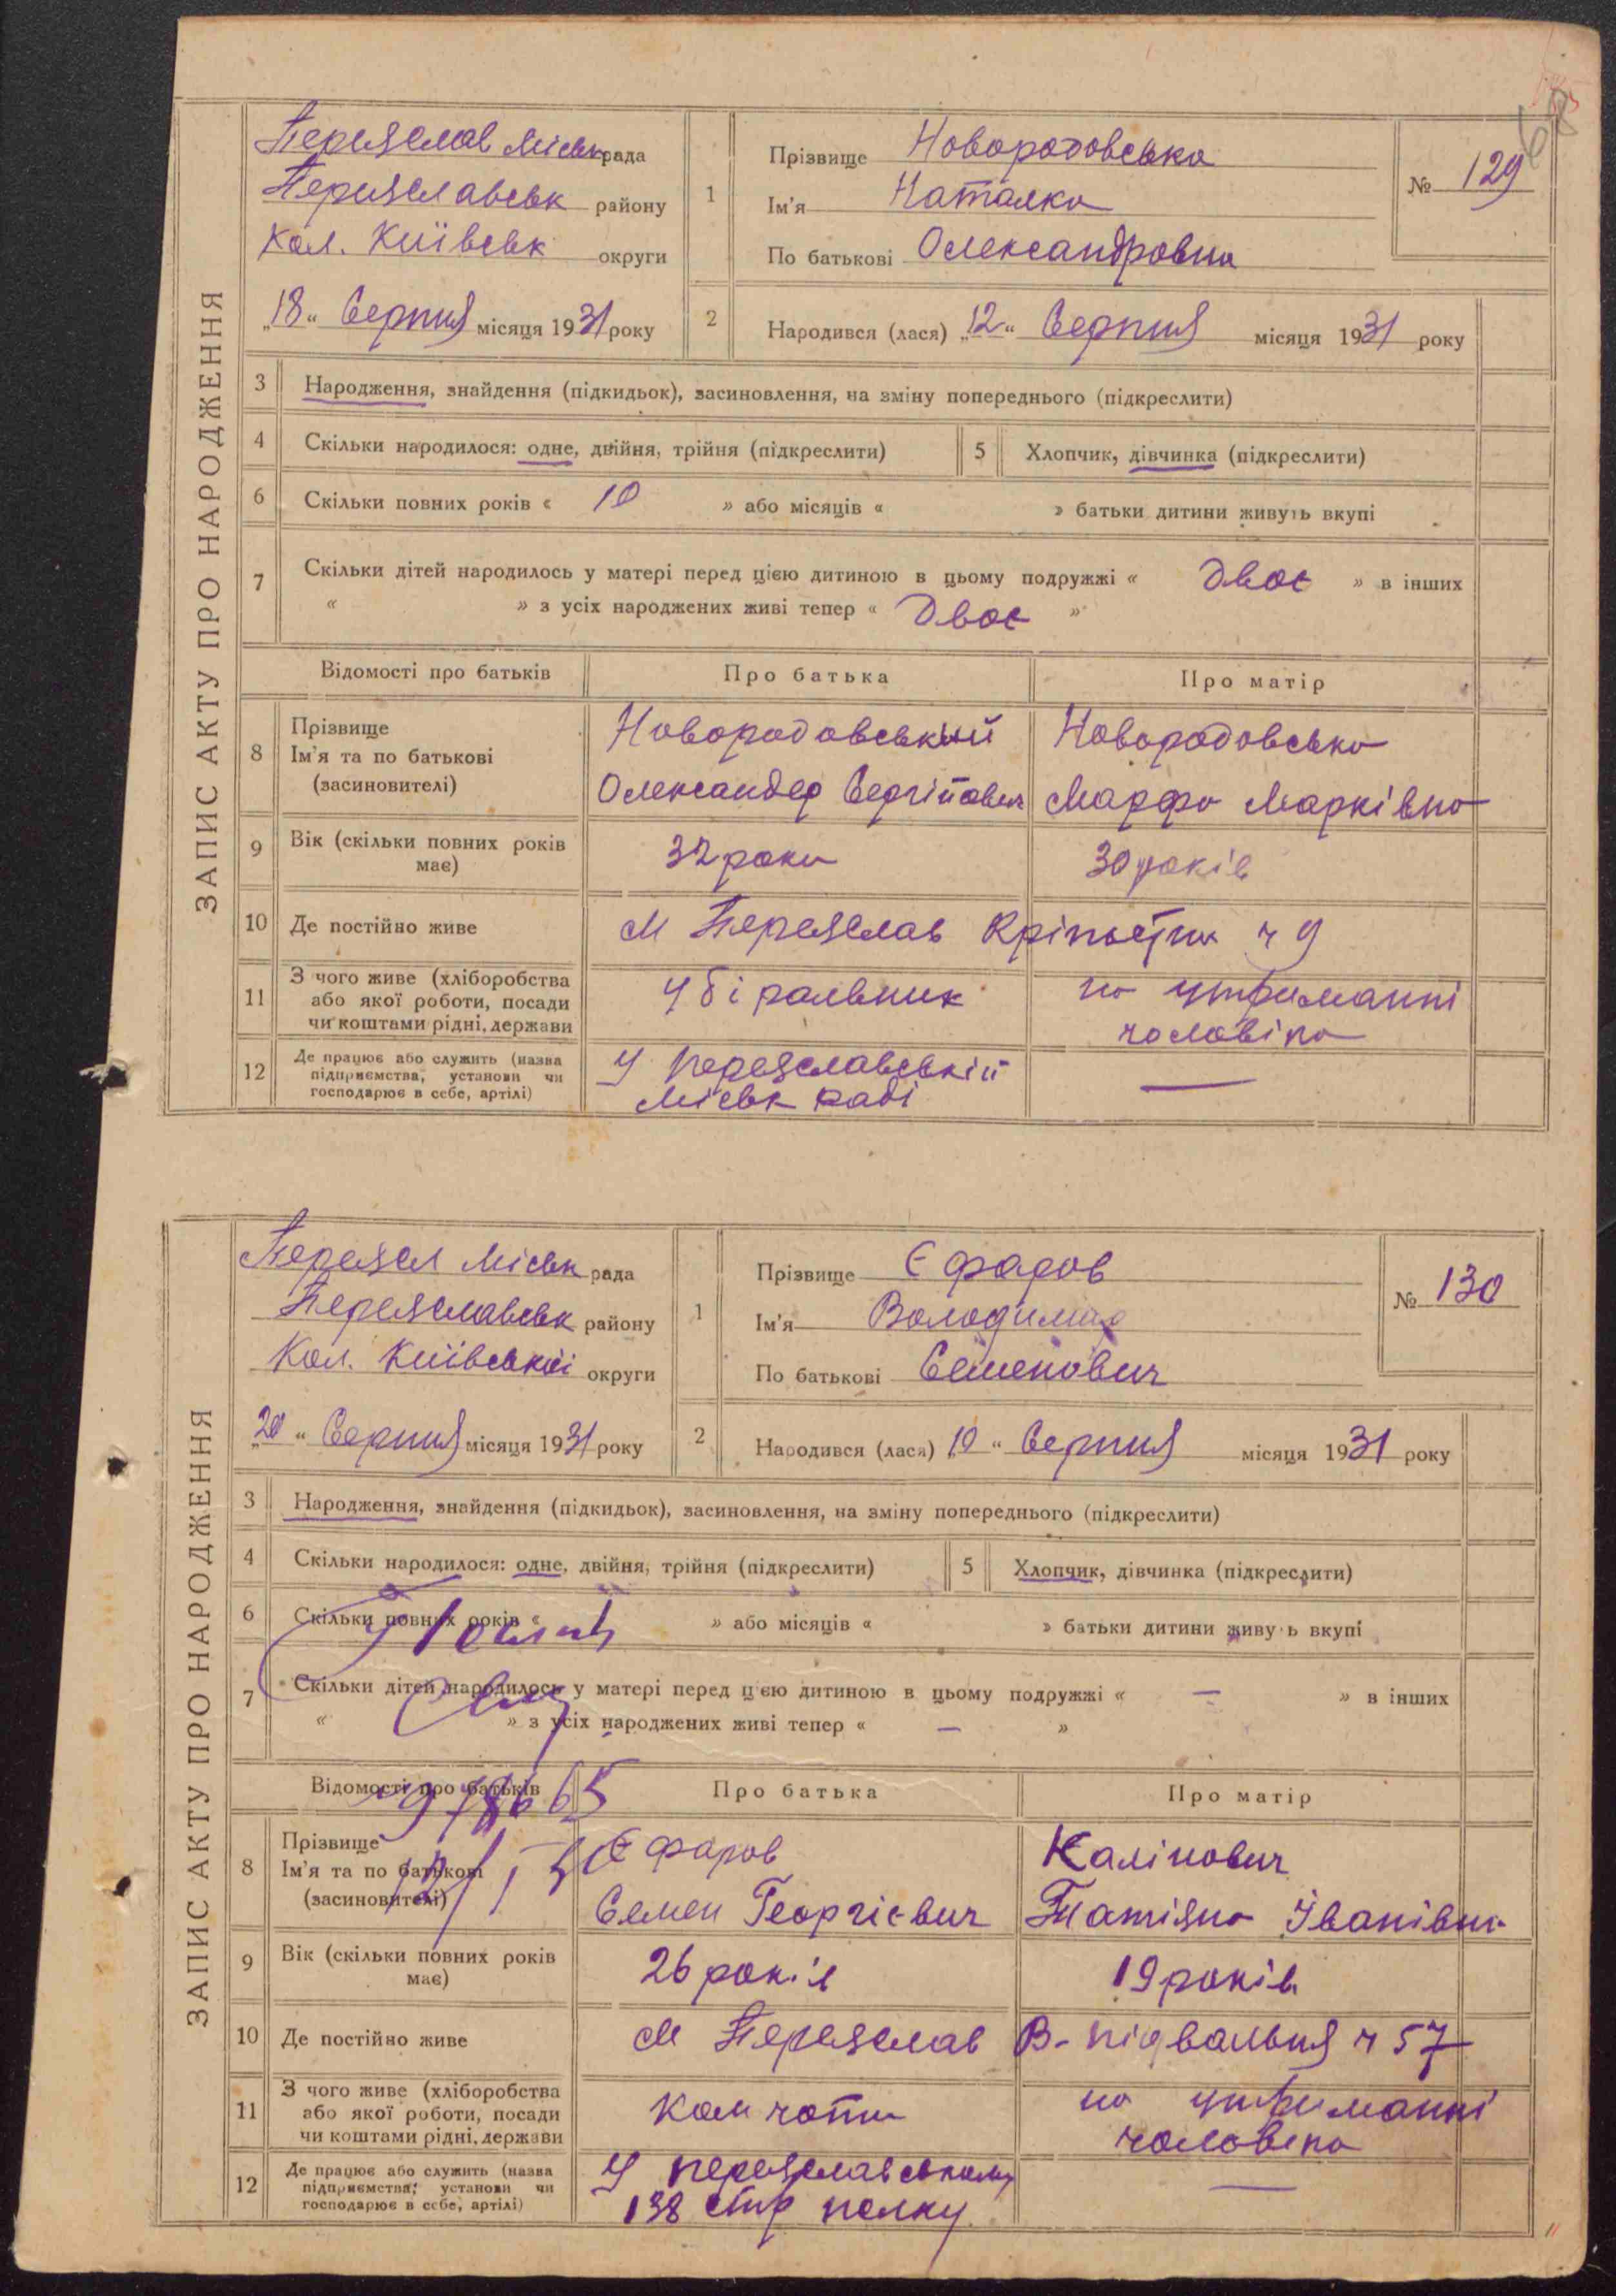 68
ЗАПИС АКТУ ПРО НАРОДЖЕННЯ
Переяслав Міськрада
Переяславськ району
Кол. Київськ округи
„18“ Серпня місяця 1931 року
1
Прізвище Новородовська
Ім'я Наталка
По батькові Олександровна
№ 129
2
Народився (лася) „12“ Серпня місяця 1931 року
3 Народження, знайдення (підкидьок), засиновлення, на зміну попереднього (підкреслити)
4 Скільки народилося: одне, двійня, трійня (підкреслити) 5 Хлопчик, дівчинка (підкреслити)
6 Скільки повних років « 10 » або місяців « » батьки дитини живуть вкупі
7 Скільки дітей народилось у матері перед цією дитиною в цьому подружжі « Двоє » в інших
« » з усіх народжених живі тепер « Двоє »
Відомості про батьків Про батька Про матір
8 Прізвище
Ім'я та по батькові
(засиновителі)
Новородовський
Олександер Сергійович
Новородовська
Марфа Марківна
9 Вік (скільки повних років має) 32 роки 30 років
10 Де постійно живе М Переяслав ч 9
11 З чого живе (хліборобства
або якої роботи, посади
чи коштами рідні, держави
Убіральник
на утриманні
чоловіка
12 Де працює або служить (назва
підприємства, установи чи
господарює в себе, артілі)
У Переяславській
Міськ раді
—
ЗАПИС АКТУ ПРО НАРОДЖЕННЯ
Переясл Міськ рада
Переяславськ району
Кол. Київської округи
„20“ Серпня місяця 1931 року
1
Прізвище Єфаров
Ім'я Володимир
По батькові Семенович
№ 130
2
Народився (лася) „10“ Серпня місяця 1931 року
3 Народження, знайдення (підкидьок), засиновлення, на зміну попереднього (підкреслити)
4 Скільки народилося: одне, двійня, трійня (підкреслити) 5 Хлопчик, дівчинка (підкреслити)
6 Скільки повних років « » або місяців « » батьки дитини живуть вкупі
7 Скільки дітей народилось у матері перед цією дитиною в цьому подружжі « — » в інших
« » з усіх народжених живі тепер « — »
Відомості про батьків Про батька Про матір
8 Прізвище
Ім'я та по батькові
(засиновителі)
Єфаров
Семен Георгієвич
Калінович
Татіяна Іванівна
9 Вік (скільки повних років має) 26 років 19 років
10 Де постійно живе М Переяслав В-підвальня ч 57
11 З чого живе (хліборобства
або якої роботи, посади
чи коштами рідні, держави
Ком роти
на утриманні
чоловіка
12 Де працює або служить (назва
підприємства, установи чи
господарює в себе, артілі)
У переяславському
138 стр полку
—